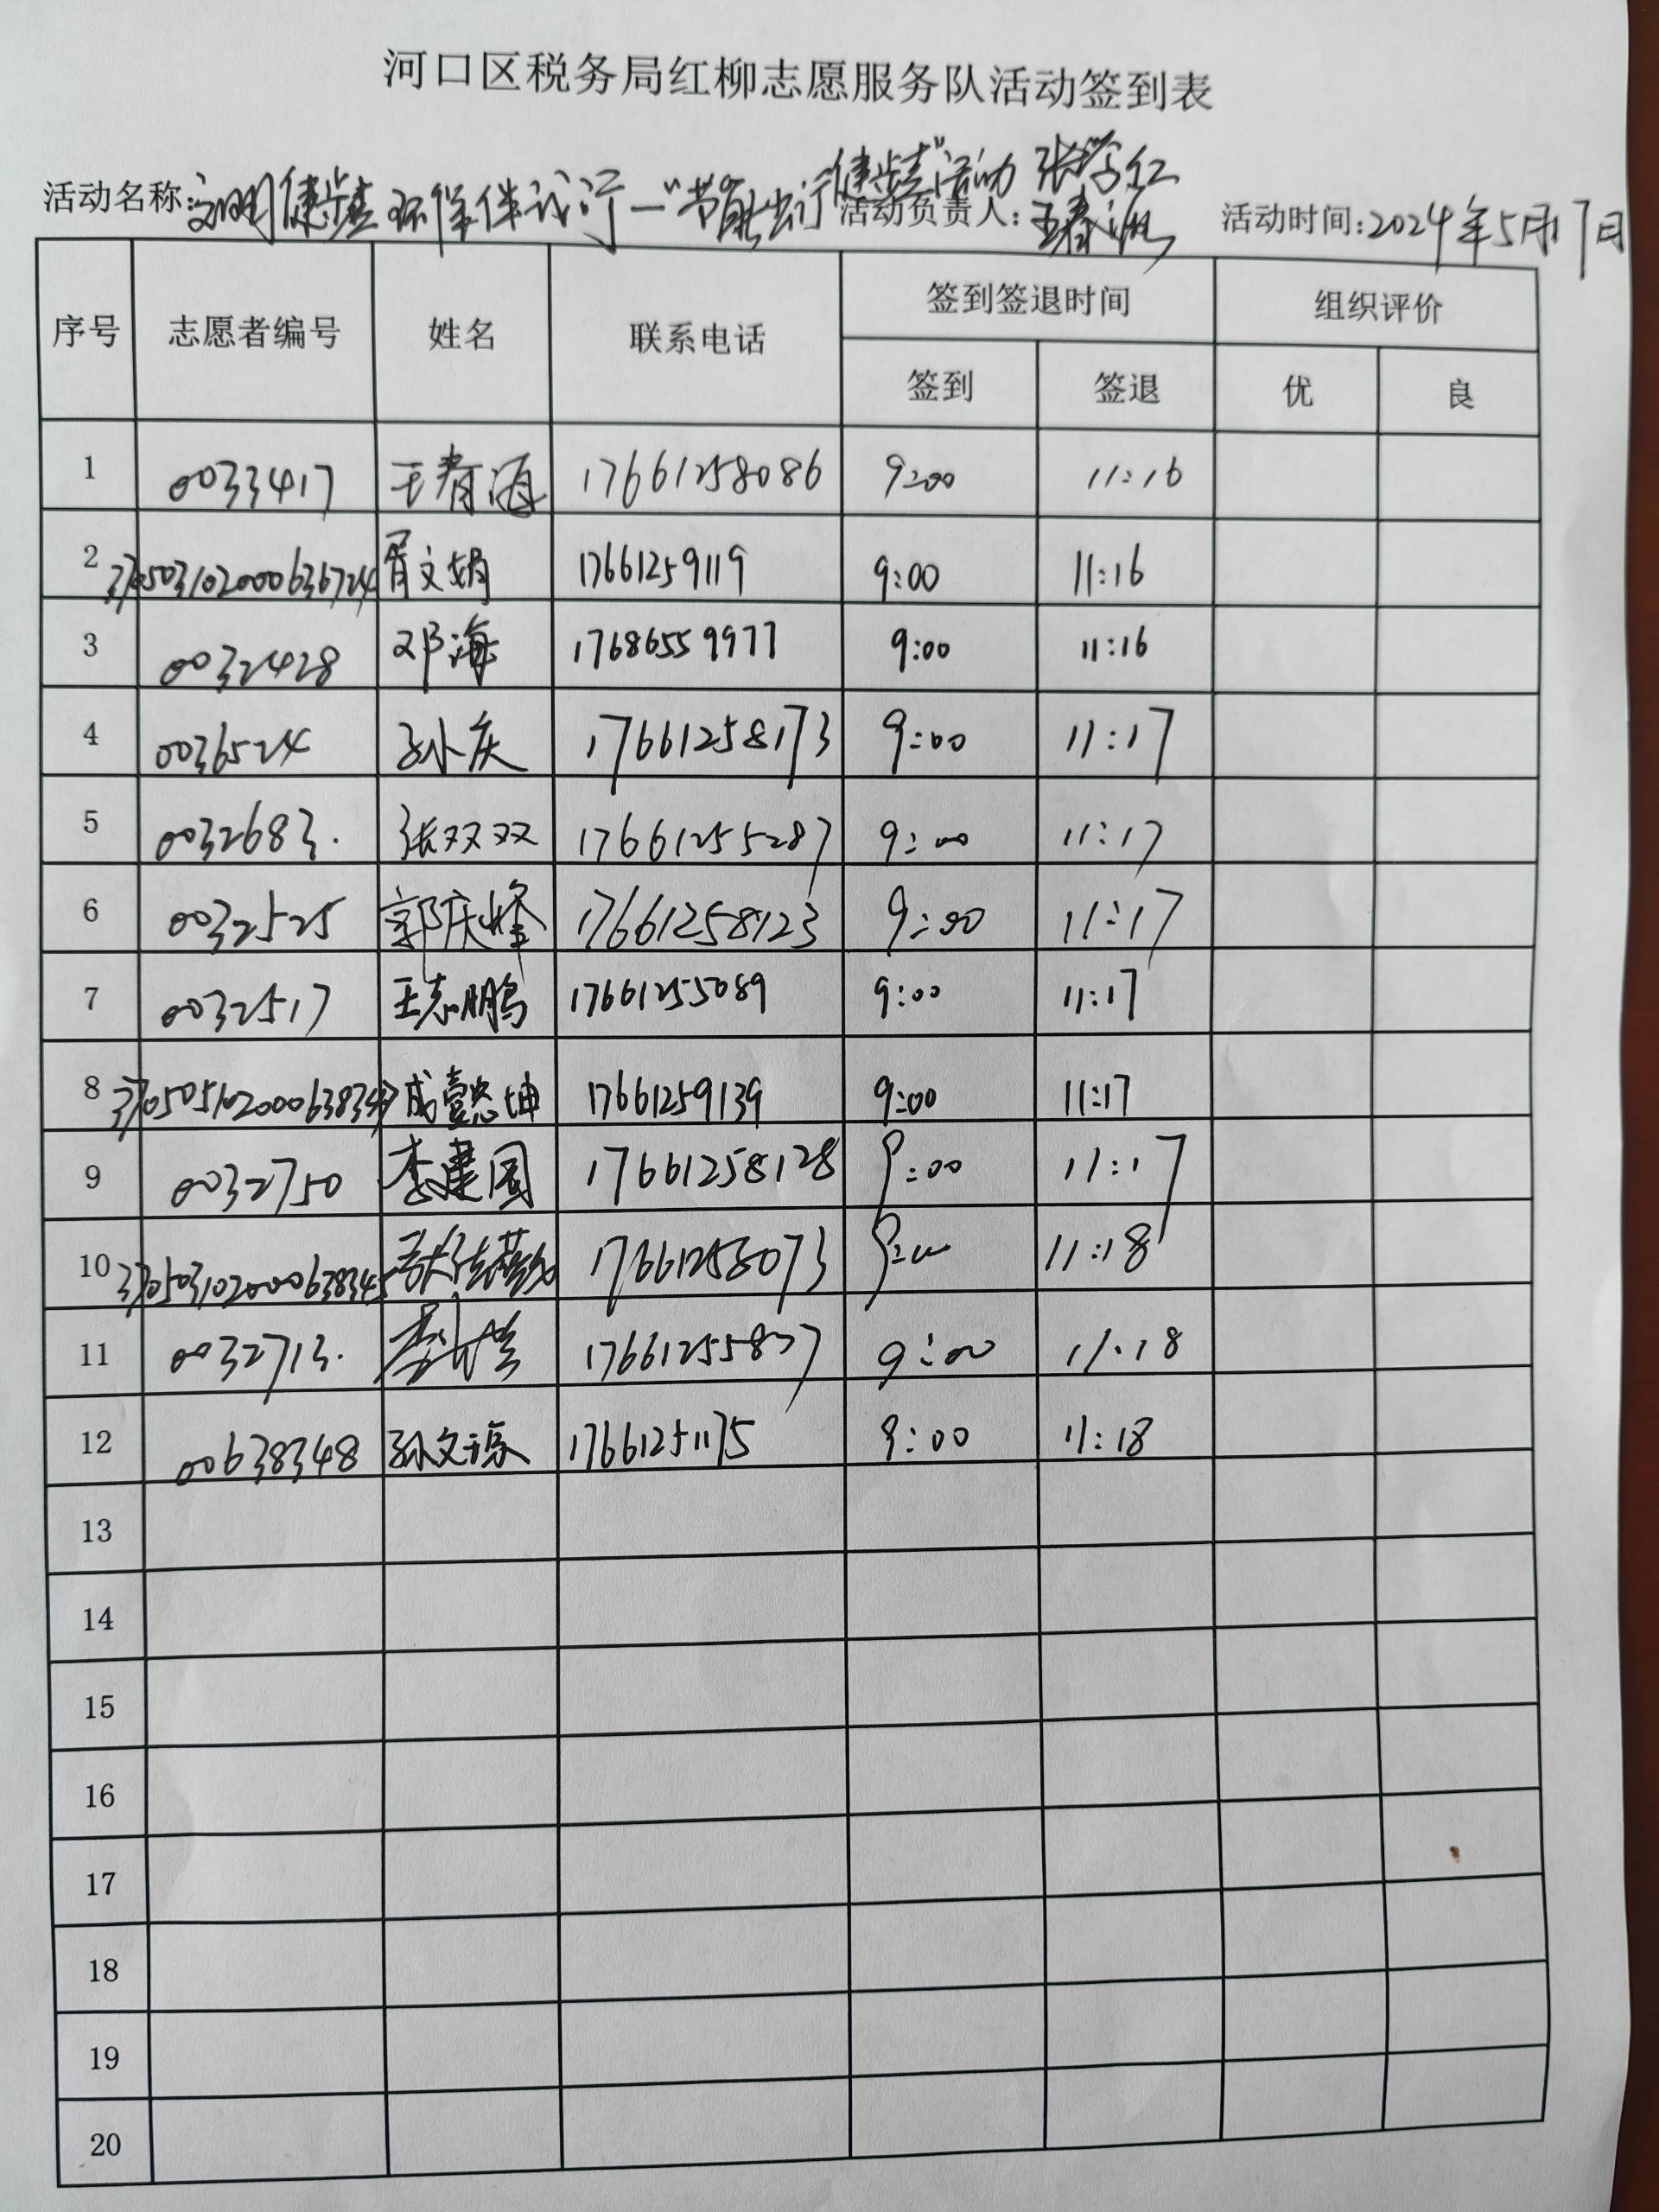 河口区税务局红柳志愿服务队活动签到表
活动名称: 文明健步走 环保伴我行—"节能出行健步走"活动 活动负责人: 张学红 王春海 活动时间: 2024年5月17日
序号 志愿者编号 姓名 联系电话 签到签退时间 组织评价
签到 签退 优 良
1 0033417 王春海 17661258086 9:00 11:16
2 370503102000636724 胥文娟 17661259119 9:00 11:16
3 0032428 邓海 17686559977 9:00 11:16
4 0036524 孙庆 17661258173 9:00 11:17
5 0032683. 张双双 17661255287 9:00 11:17
6 0032525 郭庆峰 17661258123 9:00 11:17
7 0032517 王志鹏 17661255089 9:00 11:17
8 370505102000638347 成懿坤 17661259139 9:00 11:17
9 0032750 李建国 17661258128 9:00 11:17
10 370503102000638345 17661258073 9:00 11:18
11 0032713. 17661255837 9:00 11:18
12 00638348 孙文琼 17661251175 9:00 11:18
13
14
15
16
17
18
19
20